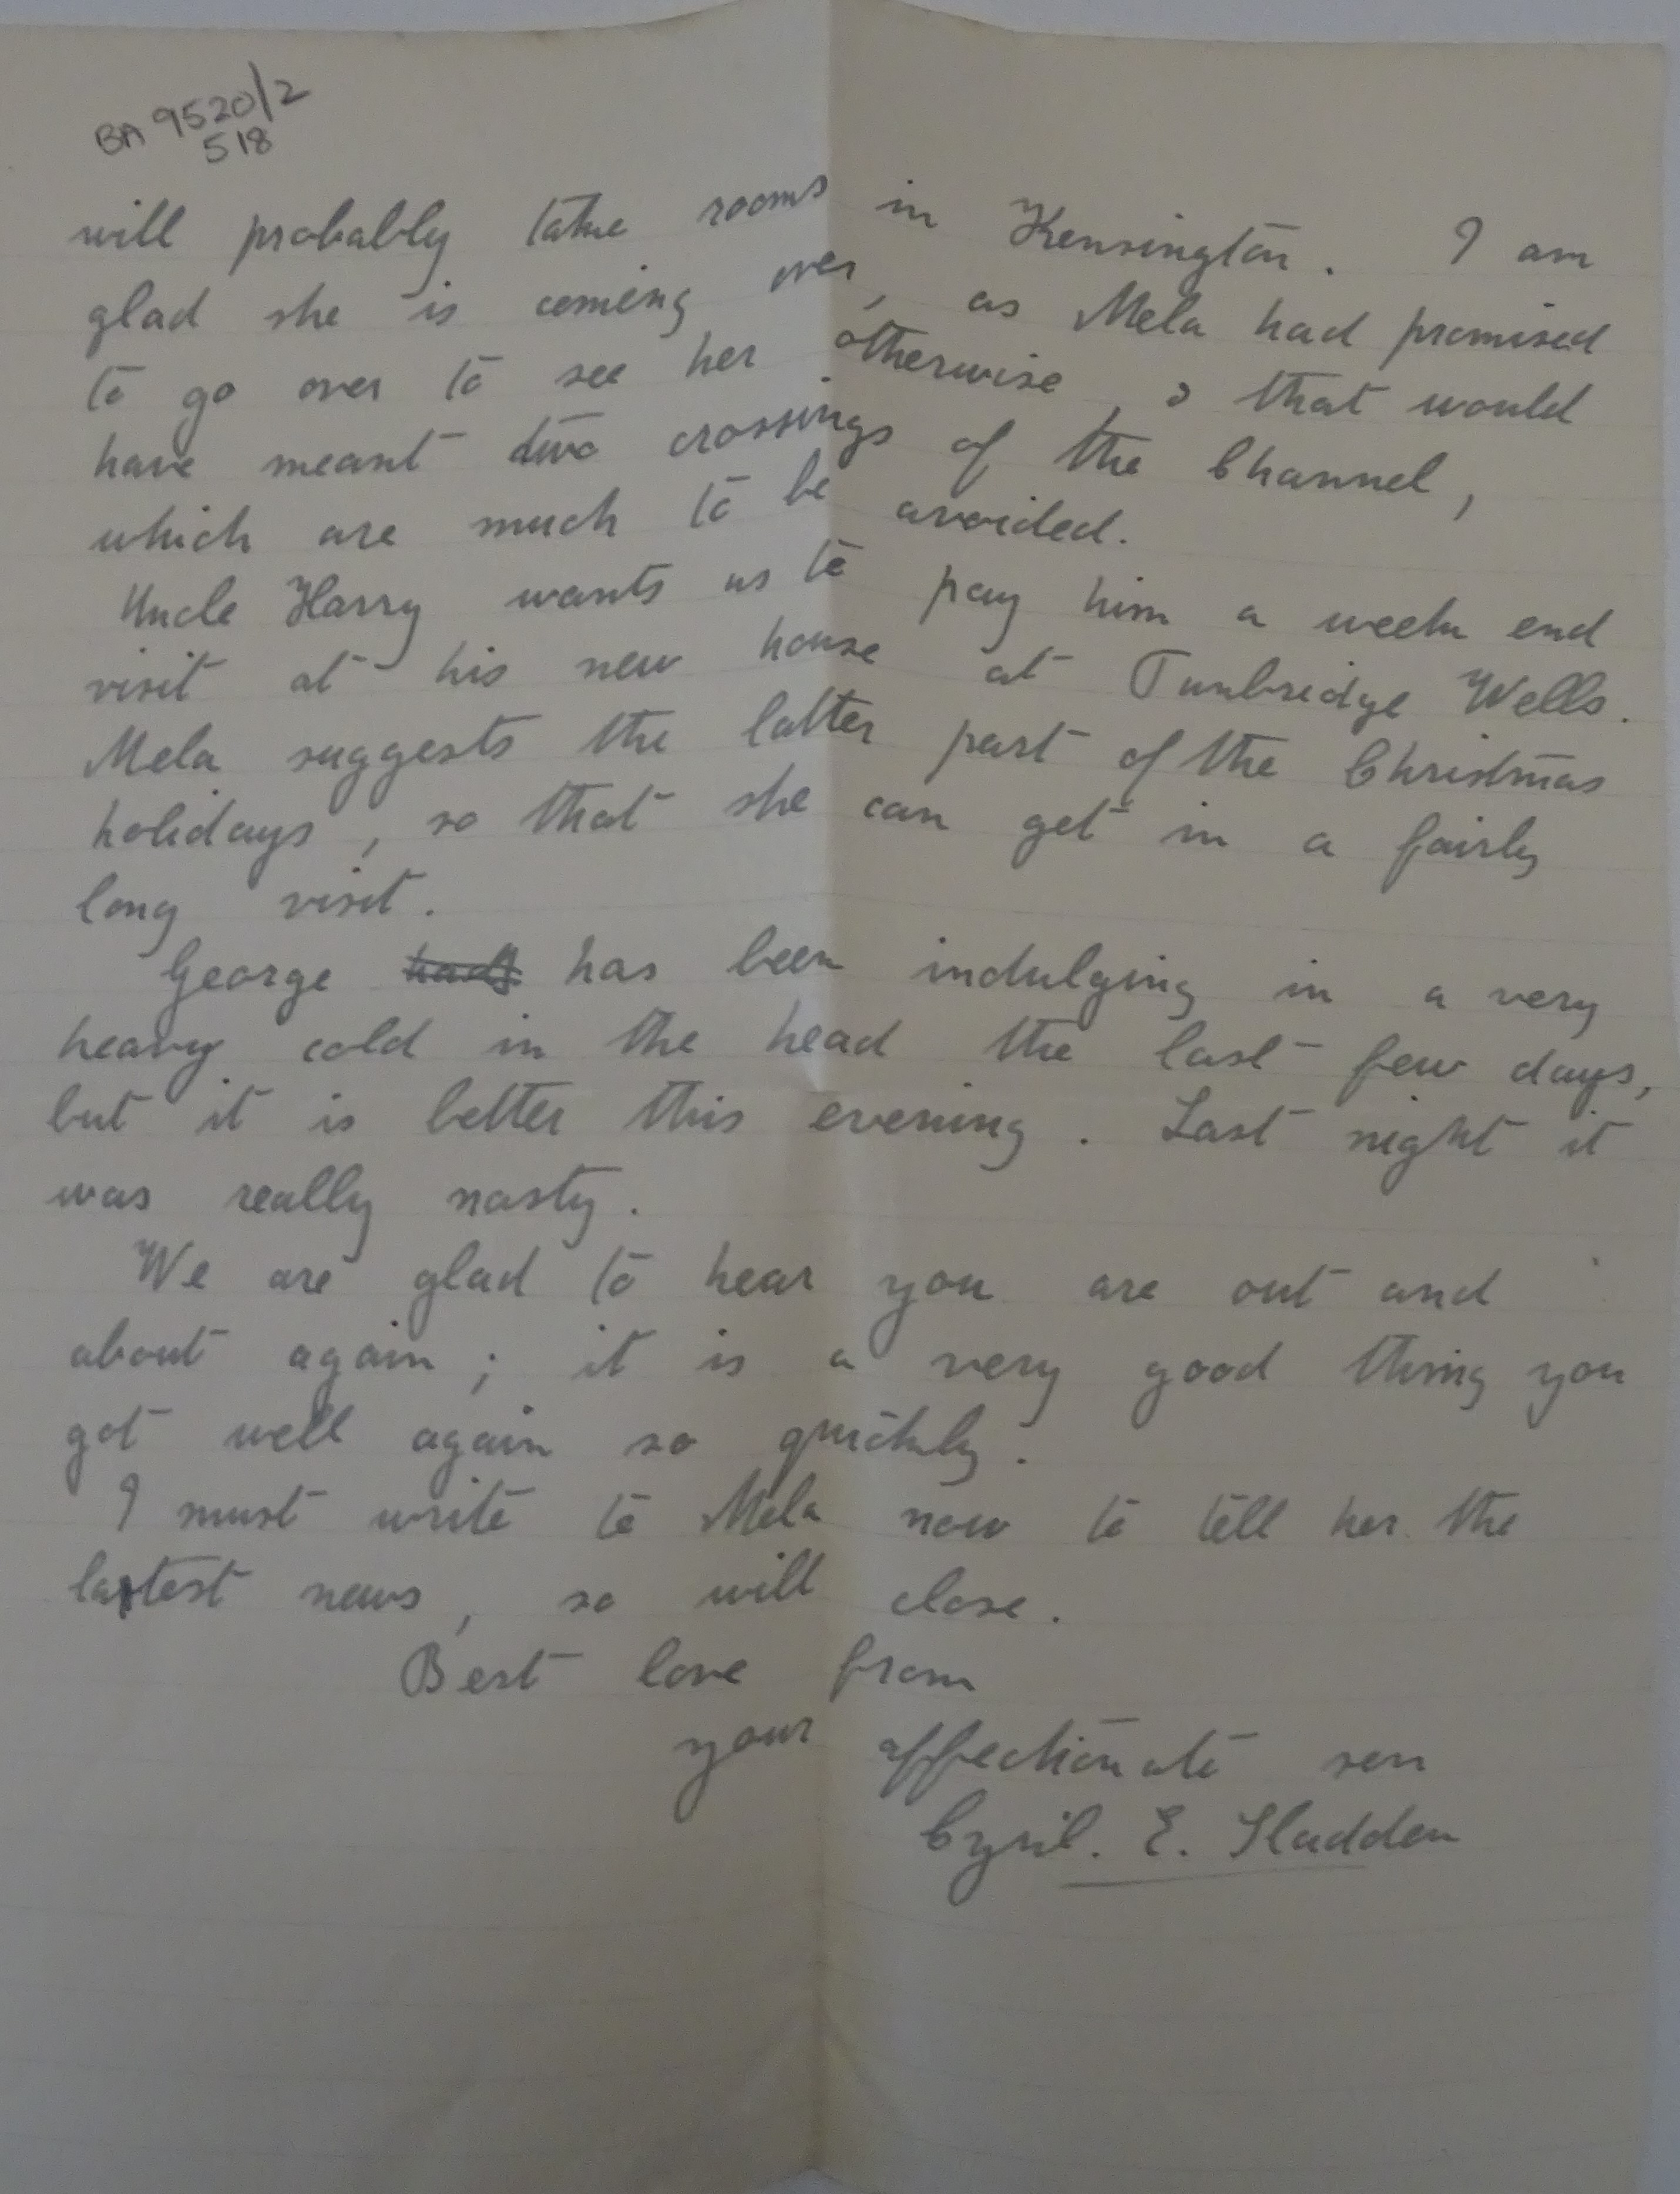 BA 9520/2
518
will probably take rooms in Kensington. I am
glad she is coming over, as Mela had promised
to go over to see her otherwise, & that would
have meant two crossings of the Channel,
which are much to be avoided.
Uncle Harry wants us to pay him a week end
visit at his new house at Tunbridge Wells.
Mela suggests the latter part of the Christmas
holidays, so that she can get in a fairly
long visit.
George has been indulging in a very
heavy cold in the head the last few days,
but it is better this evening. Last night it
was really nasty.
We are glad to hear you are out and
about again; it is a very good thing you
got well again so quickly.
I must write to Mela now to tell her the
latest news, so will close.
Best love from
your affectionate son
Cyril. E. Sladden